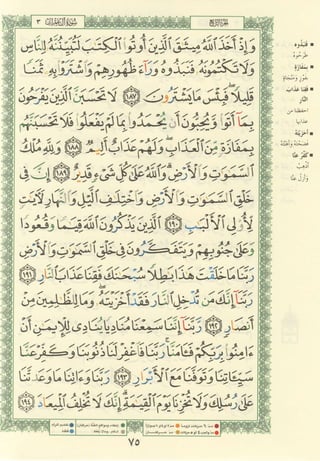 سورة آل عمران ٣
الجزء الرابع
وَإِذْ أَخَذَ اللَّهُ مِيثَٰقَ الَّذِينَ أُوتُوا الْكِتَٰبَ لَتُبَيِّنُنَّهُ لِلنَّاسِ
وَلَا تَكْتُمُونَهُ فَنَبَذُوهُ وَرَآءَ ظُهُورِهِمْ وَاشْتَرَوْا بِهِ ثَمَنًا
قَلِيلًا فَبِئْسَ مَا يَشْتَرُونَ ١٨٧ لَا تَحْسَبَنَّ الَّذِينَ يَفْرَحُونَ
بِمَآ أَتَوا وَّيُحِبُّونَ أَن يُحْمَدُوا بِمَا لَمْ يَفْعَلُوا فَلَا تَحْسَبَنَّهُم
بِمَفَازَةٍ مِّنَ الْعَذَابِ وَلَهُمْ عَذَابٌ أَلِيمٌ ١٨٨ وَلِلَّهِ مُلْكُ
السَّمَٰوَٰتِ وَالْأَرْضِ وَاللَّهُ عَلَىٰ كُلِّ شَيْءٍ قَدِيرٌ ١٨٩ إِنَّ فِي
خَلْقِ السَّمَٰوَٰتِ وَالْأَرْضِ وَاخْتِلَٰفِ الَّيْلِ وَالنَّهَارِ لَءَايَٰتٍ
لِّأُولِي الْأَلْبَٰبِ ١٩٠ الَّذِينَ يَذْكُرُونَ اللَّهَ قِيَٰمًا وَقُعُودًا
وَعَلَىٰ جُنُوبِهِمْ وَيَتَفَكَّرُونَ فِي خَلْقِ السَّمَٰوَٰتِ وَالْأَرْضِ
رَبَّنَا مَا خَلَقْتَ هَٰذَا بَٰطِلًا سُبْحَٰنَكَ فَقِنَا عَذَابَ النَّارِ ١٩١
رَبَّنَآ إِنَّكَ مَن تُدْخِلِ النَّارَ فَقَدْ أَخْزَيْتَهُ وَمَا لِلظَّٰلِمِينَ مِنْ
أَنصَارٍ ١٩٢ رَّبَّنَآ إِنَّنَا سَمِعْنَا مُنَادِيًا يُنَادِي لِلْإِيمَٰنِ أَنْ
ءَامِنُوا بِرَبِّكُمْ فَـَٔامَنَّا رَبَّنَا فَاغْفِرْ لَنَا ذُنُوبَنَا وَكَفِّرْ عَنَّا
سَيِّـَٔاتِنَا وَتَوَفَّنَا مَعَ الْأَبْرَارِ ١٩٣ رَبَّنَا وَءَاتِنَا مَا وَعَدتَّنَا
عَلَىٰ رُسُلِكَ وَلَا تُخْزِنَا يَوْمَ الْقِيَٰمَةِ إِنَّكَ لَا تُخْلِفُ الْمِيعَادَ ١٩٤
٧٥
فنبذوه
طرحوه
بمفازة
فقنا عذاب النار
أخزيته
كفر عنا